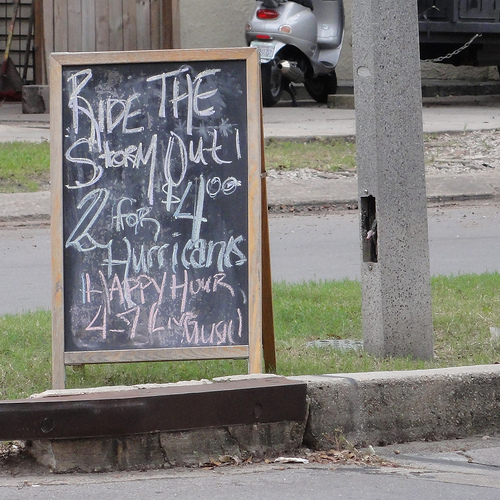 RIDE THE
STORM OUT!
2 for $4.00
Hurricanes
HAPPY HOUR
4-7 Live MUSIC!